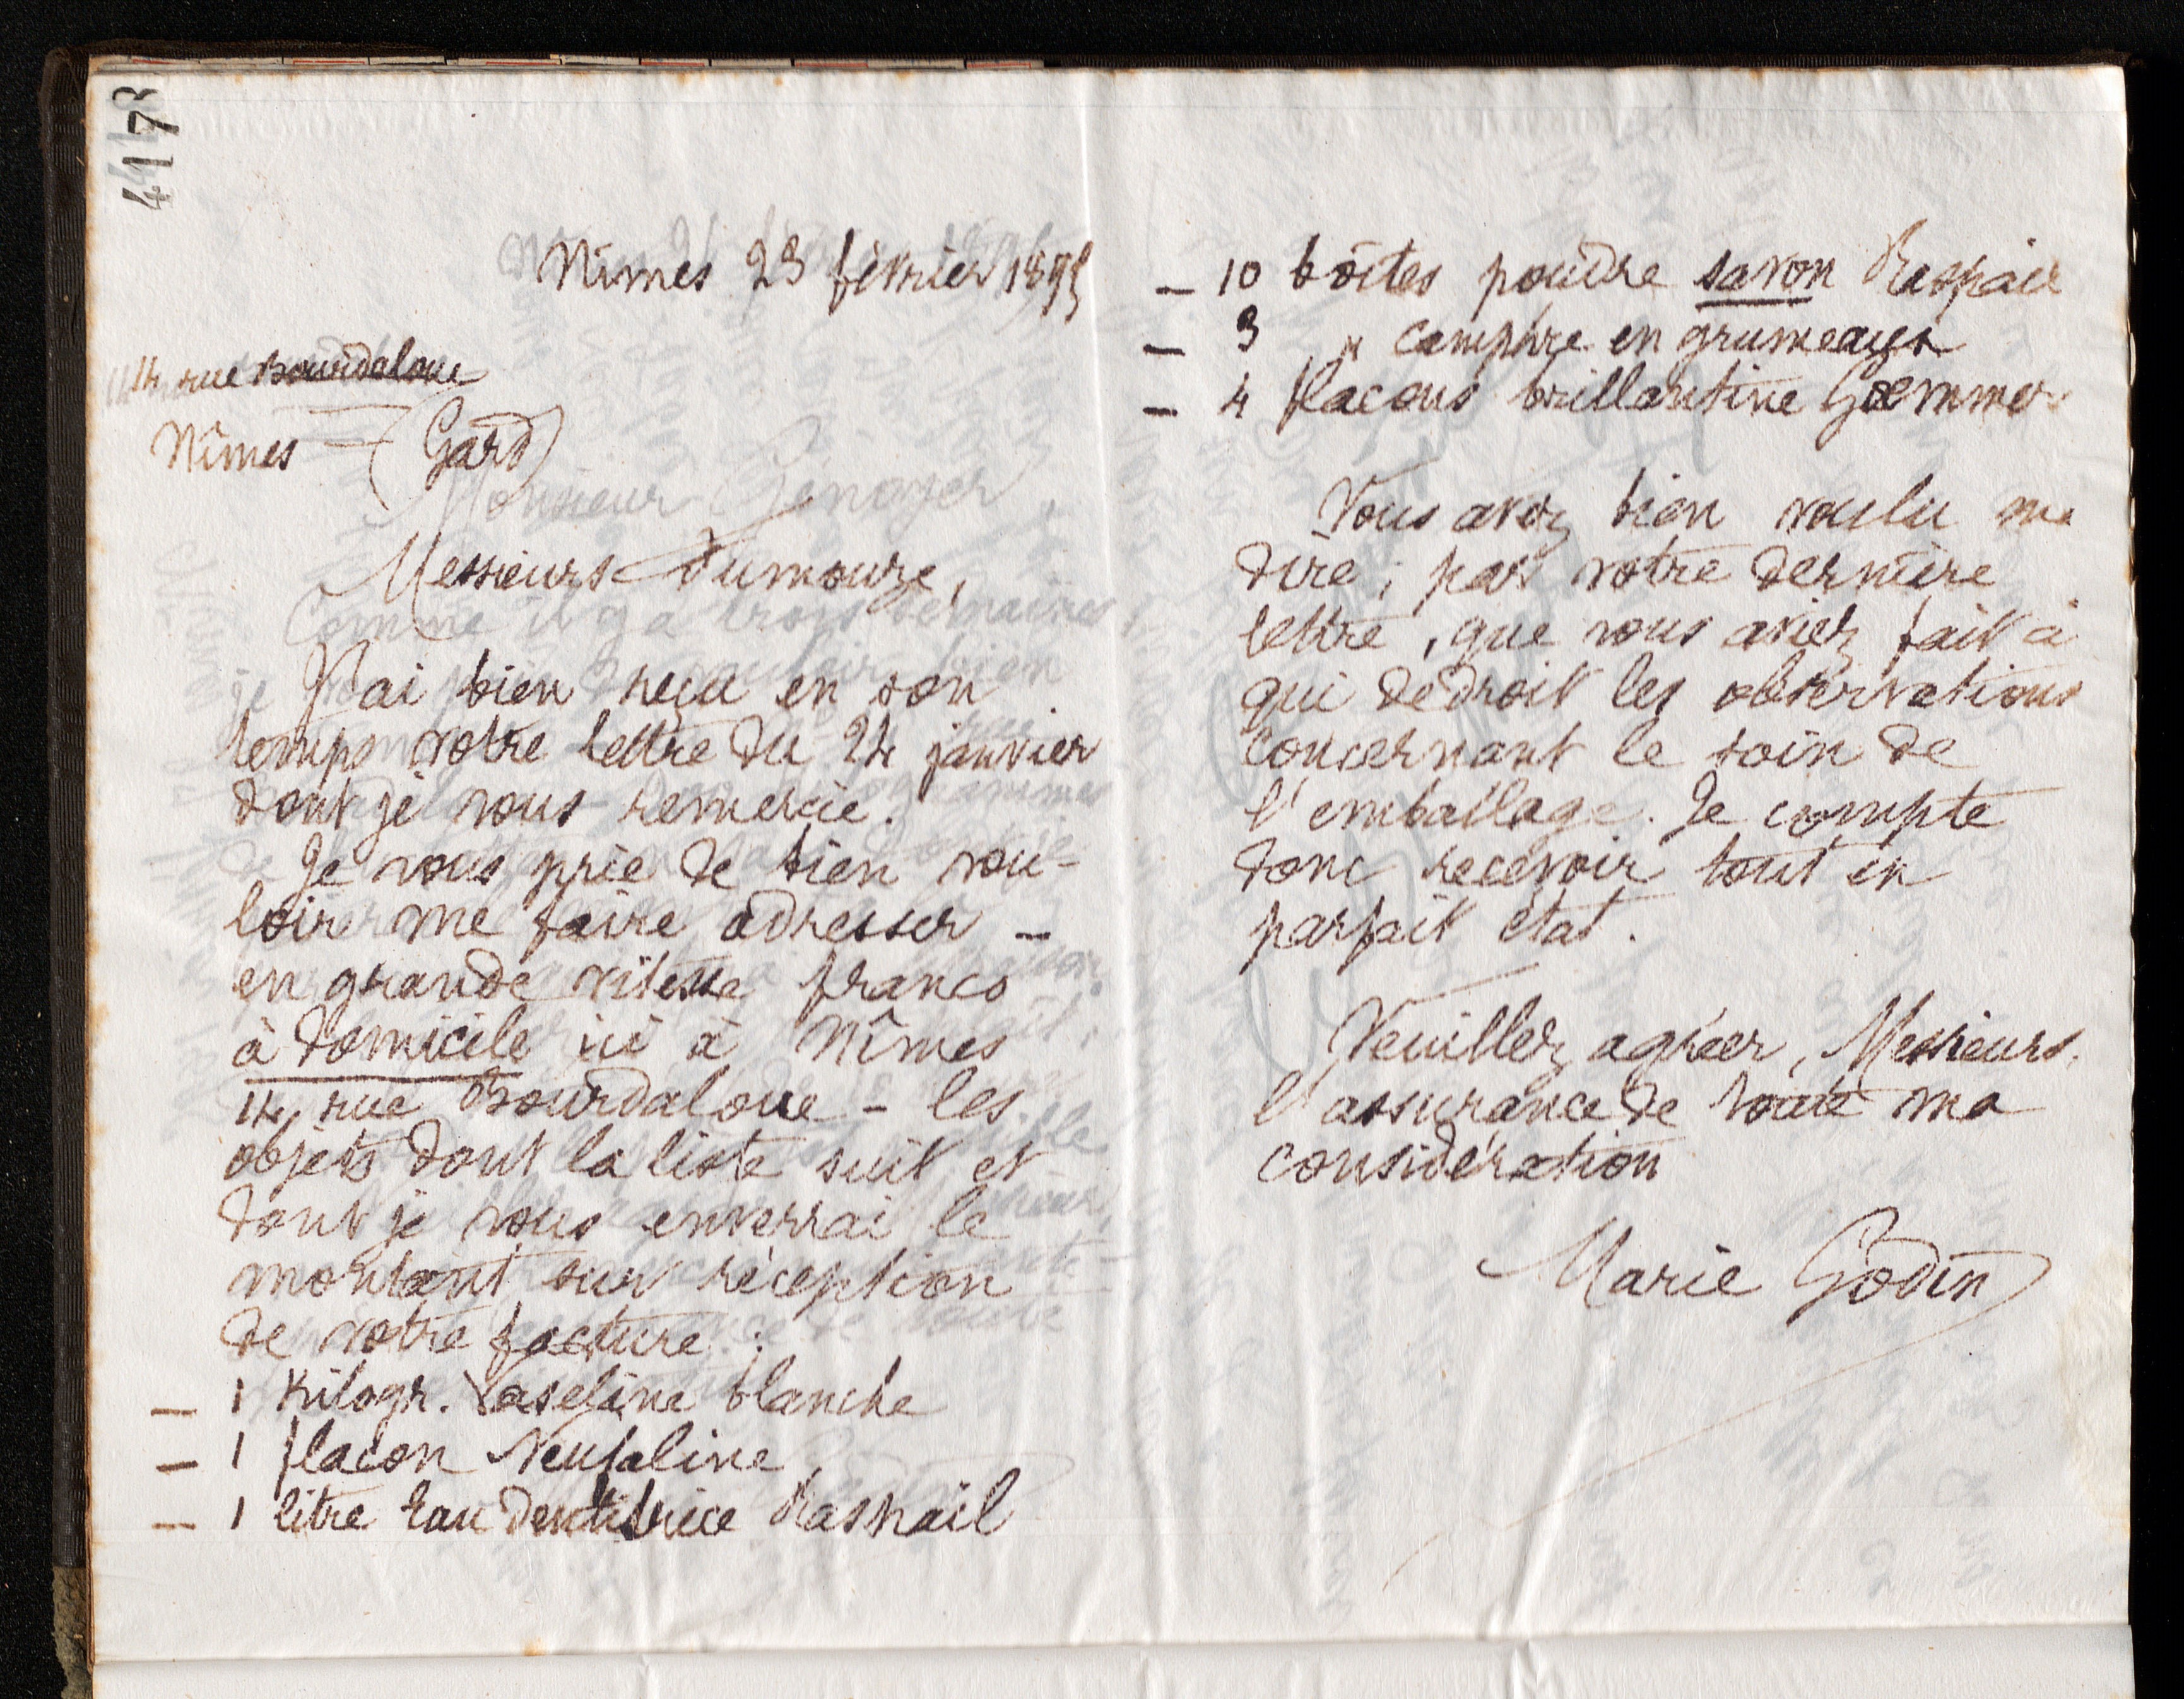 417
Nîmes 23 février 1895
14 rue Bourdaloue
Nîmes (Gard)
Messieurs Dumouze,
J'ai bien reçu en son
temps votre lettre du 24 janvier
dont je vous remercie.
Je vous prie de bien vou-
loir me faire adresser –
en grande vitesse franco
à domicile ici à Nîmes
14, rue Bourdaloue – les
objets dont la liste suit et
dont je vous enverrai le
montant sur réception
de votre facture :
– 1 Kilogr. Vaseline blanche
– 1 flacon Neufaline
– 1 litre Eau dentifrice Raspail
– 10 boîtes poudre savon Raspail
– 3 " camphre en grumeaux
– 4 flacons brillantine
Vous avez bien voulu me
dire, par votre dernière
lettre, que vous aviez fait à
qui de droit les observations
concernant le soin de
l'emballage. Je compte
donc recevoir tout en
parfait état.
Veuillez agréer, Messieurs,
l'assurance de toute ma
considération
Marie Godin